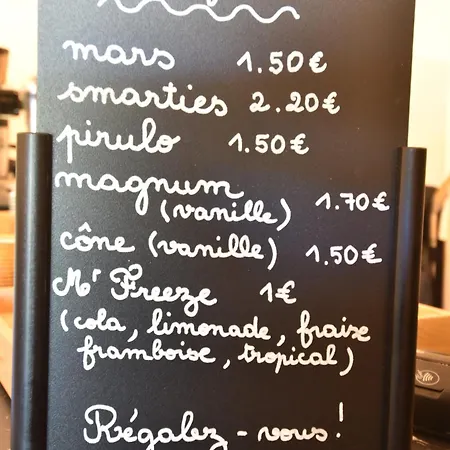 mars 1.50€
smarties 2.20€
pirulo 1.50€
magnum
(vanille) 1.70€
cône (vanille) 1.50€
Mr Freeze 1€
(cola, limonade, fraise
framboise, tropical)
Régalez-vous!